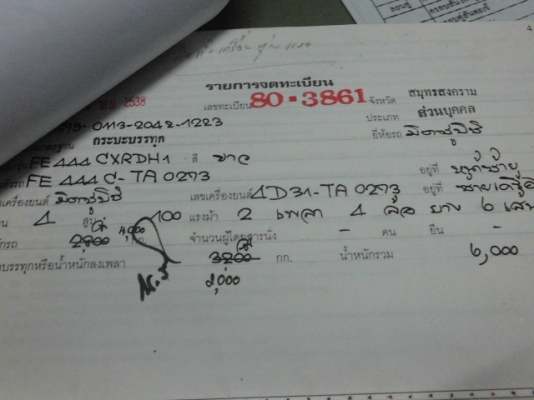 รายการจดทะเบียน
2538 เลขทะเบียน 80-3861 จังหวัด สมุทรสงคราม
0113-2042-1223 ประเภท ส่วนบุคคล
กระบะบรรทุก ยี่ห้อรถ มิตซูบิชิ
FE 444 CXRDH1 สี ขาว
FE 444 C-TA 0273 อยู่ที่
เครื่องยนต์ มิตซูบิชิ เลขเครื่องยนต์ 4D31-TA 0273 อยู่ที่
4 สูบ 100 แรงม้า 2 เพลา 4 ล้อ ยาง 6 เส้น
2,800 4,000 จำนวนผู้โดยสารนั่ง - คน ยืน -
บรรทุกหรือน้ำหนักลงเพลา 3200 กก. น้ำหนักรวม 6,000
2,000